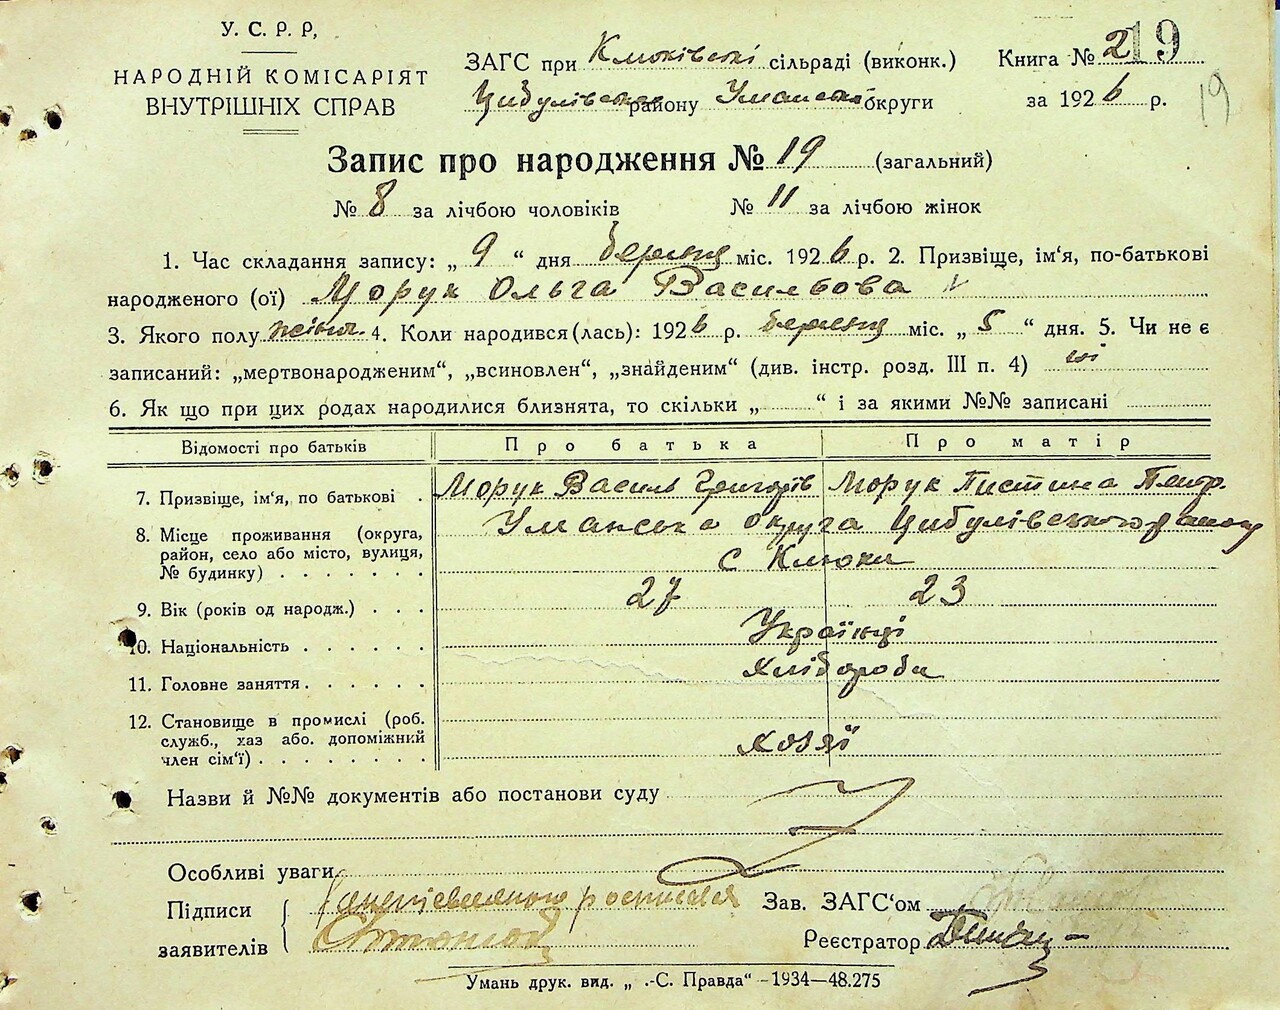 У. С. Р. Р,
НАРОДНІЙ КОМІСАРІЯТ
ВНУТРІШНІХ СПРАВ
ЗАГС при Клюківські сільраді (виконк.)
Цибулівського району Уманської округи
Книга № 2 19
за 1926 р.
19
Запис про народження № 19 (загальний)
№ 8 за лічбою чоловіків № 11 за лічбою жінок
1. Час складання запису: „ 9 “ дня березня міс. 1926 р. 2. Призвіще, ім‘я, по-батькові
народженого (ої) Морук Ольга Васильова
3. Якого полу жіноч. 4. Коли народився(лась): 1926 р. березня міс. „ 5 “ дня. 5. Чи не є
записаний: „мертвонародженим“, „всиновлен“, „знайденим“ (див. інстр. розд. III п. 4) ні
6. Як що при цих родах народилися близнята, то скільки „ “ і за якими №№ записані
Відомості про батьків Про батька Про матір
7. Призвіще, ім‘я, по батькові . Морук Василь Григорів Морук Пистина Петр.
8. Місце проживання (округа, Уманська округа Цибулівського району
район, село або місто, вулиця,
№ будинку) . . . . . . . с Клюки
9. Вік (років од народж.) . . . 27 23
10. Національність . . . . . . Українці
11. Головне заняття . . . . . . Хлібороби
12. Становище в промислі (роб.
служб., хаз або. допоміжний
член сім‘ї) . . . . . . . . хозяї
Назви й №№ документів або постанови суду
Особливі уваги
Підписи
заявителів
Зав. ЗАГС‘ом
Реєстратор
Умань друк. вид. „ .-С. Правда“ -1934—48.275